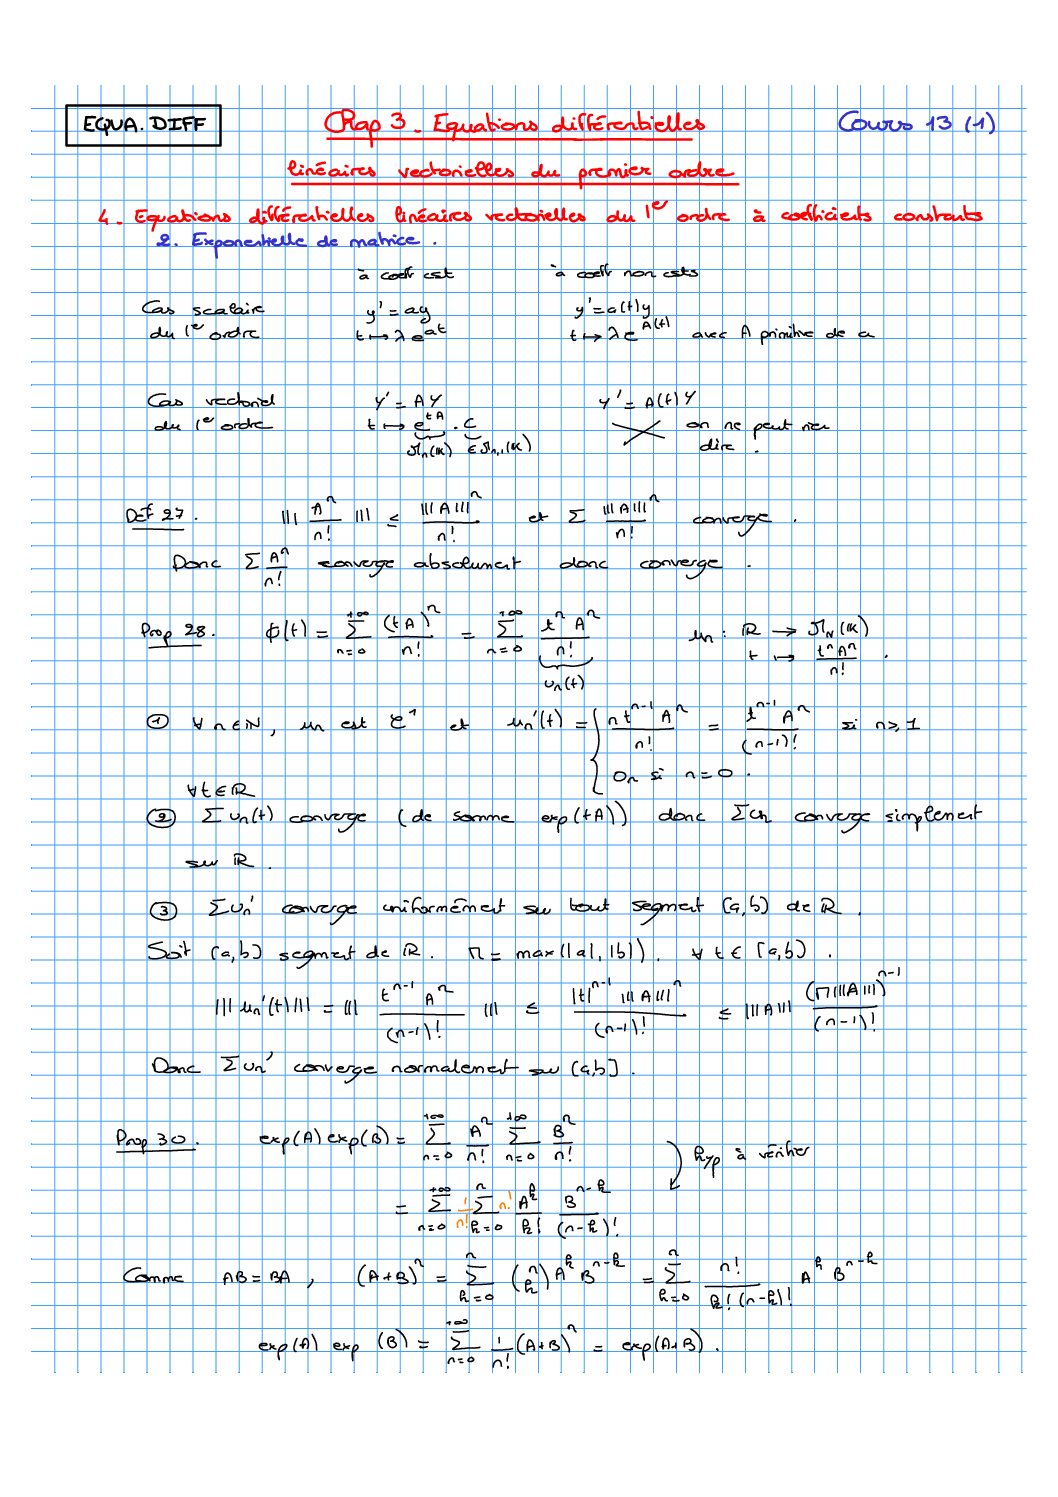 EQUA. DIFF
Chap 3 - Equations différentielles
Cours 13 (1)
linéaires vectorielles du premier ordre
4 - Equations différentielles linéaires vectorielles du 1er ordre à coefficients constants
2. Exponentielle de matrice .
à coeff cst à coeff non csts
Cas scalaire y' = ay y' = a(t)y
du 1er ordre t ↦ λ e^{at} t ↦ λ e^{A(t)} avec A primitive de a
Cas vectoriel Y' = AY Y' = A(t)Y
du 1er ordre t ↦ e^{tA} . C on ne peut rien
ℳn(𝕂) ∈ ℳn,1(𝕂) dire .
Def 27. ||| A^n / n! ||| ≤ |||A|||^n / n! et Σ |||A|||^n / n! converge .
Donc Σ A^n / n! converge absolument donc converge .
Prop 28. ϕ(t) = Σ_{n=0}^{+∞} (tA)^n / n! = Σ_{n=0}^{+∞} t^n A^n / n! un : ℝ → ℳn(𝕂)
un(t) t ↦ t^n A^n / n! .
① ∀ n ∈ ℕ, un est 𝒞^1 et un'(t) = { n t^{n-1} A^n / n! = t^{n-1} A^n / (n-1)! si n ≥ 1
0n si n = 0 .
∀ t ∈ ℝ
② Σ un(t) converge (de somme exp(tA)) donc Σ un converge simplement
sur ℝ .
③ Σ un' converge uniformément sur tout segment [a,b] de ℝ .
Soit [a,b] segment de ℝ. M = max(|a|, |b|). ∀ t ∈ [a,b] .
||| un'(t) ||| = ||| t^{n-1} A^n / (n-1)! ||| ≤ |t|^{n-1} |||A|||^n / (n-1)! ≤ |||A||| (M|||A|||)^{n-1} / (n-1)!
Donc Σ un' converge normalement sur [a,b] .
Prop 30. exp(A) exp(B) = Σ_{n=0}^{+∞} A^n / n! Σ_{n=0}^{+∞} B^n / n!
hyp à vérifier
= Σ_{n=0}^{+∞} 1/n! Σ_{k=0}^{n} n! A^k / k! B^{n-k} / (n-k)!
Comme AB = BA , (A+B)^n = Σ_{k=0}^{n} (n k) A^k B^{n-k} = Σ_{k=0}^{n} n! / k!(n-k)! A^k B^{n-k}
exp(A) exp (B) = Σ_{n=0}^{+∞} 1/n! (A+B)^n = exp(A+B) .